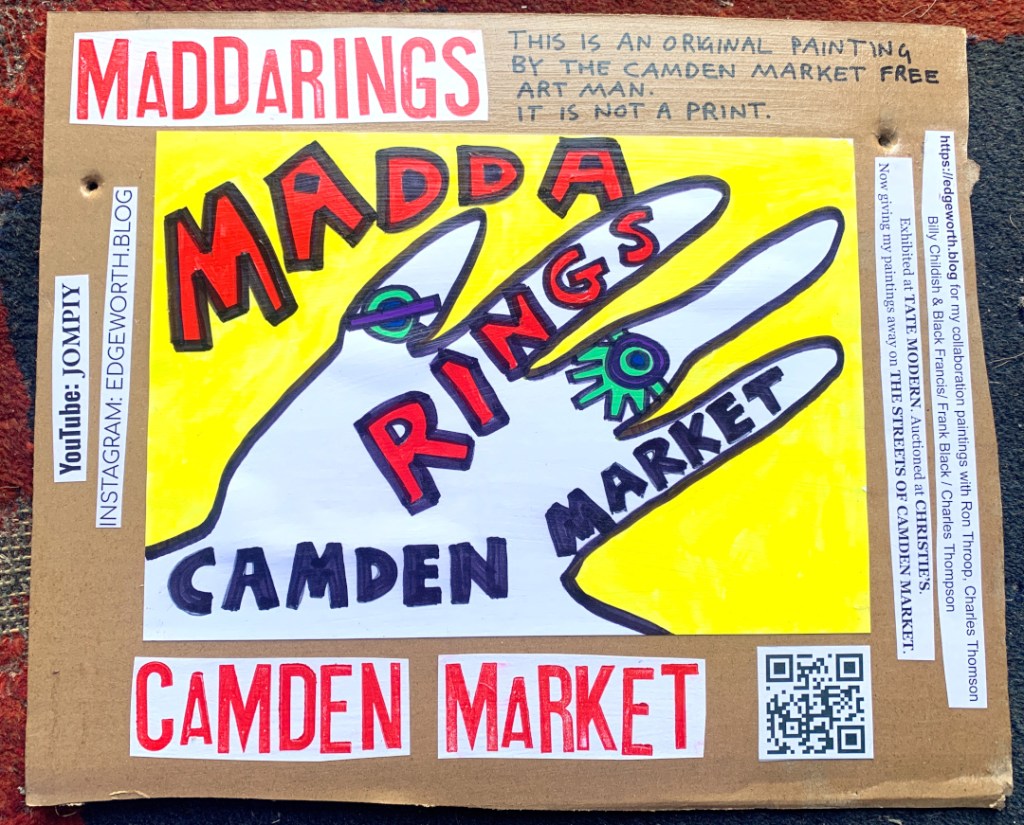 MADDARINGS
THIS IS AN ORIGINAL PAINTING
BY THE CAMDEN MARKET FREE
ART MAN.
IT IS NOT A PRINT.
MADDA
RINGS
CAMDEN
MARKET
YouTube: JOMPIY
INSTAGRAM: EDGEWORTH.BLOG
https://edgeworth.blog for my collaboration paintings with Ron Throop, Charles Thomson
Billy Childish & Black Francis/ Frank Black / Charles Thompson
Exhibited at TATE MODERN. Auctioned at CHRISTIE'S.
Now giving my paintings away on THE STREETS OF CAMDEN MARKET.
CAMDEN MARKET